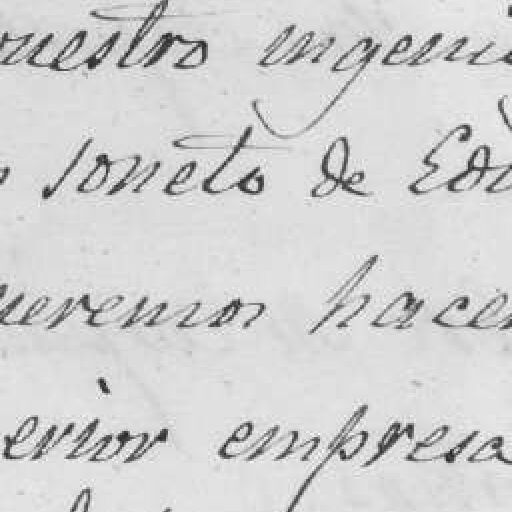 nuestro ingenio
soneto de Edu
queremos hacer
erior empresa